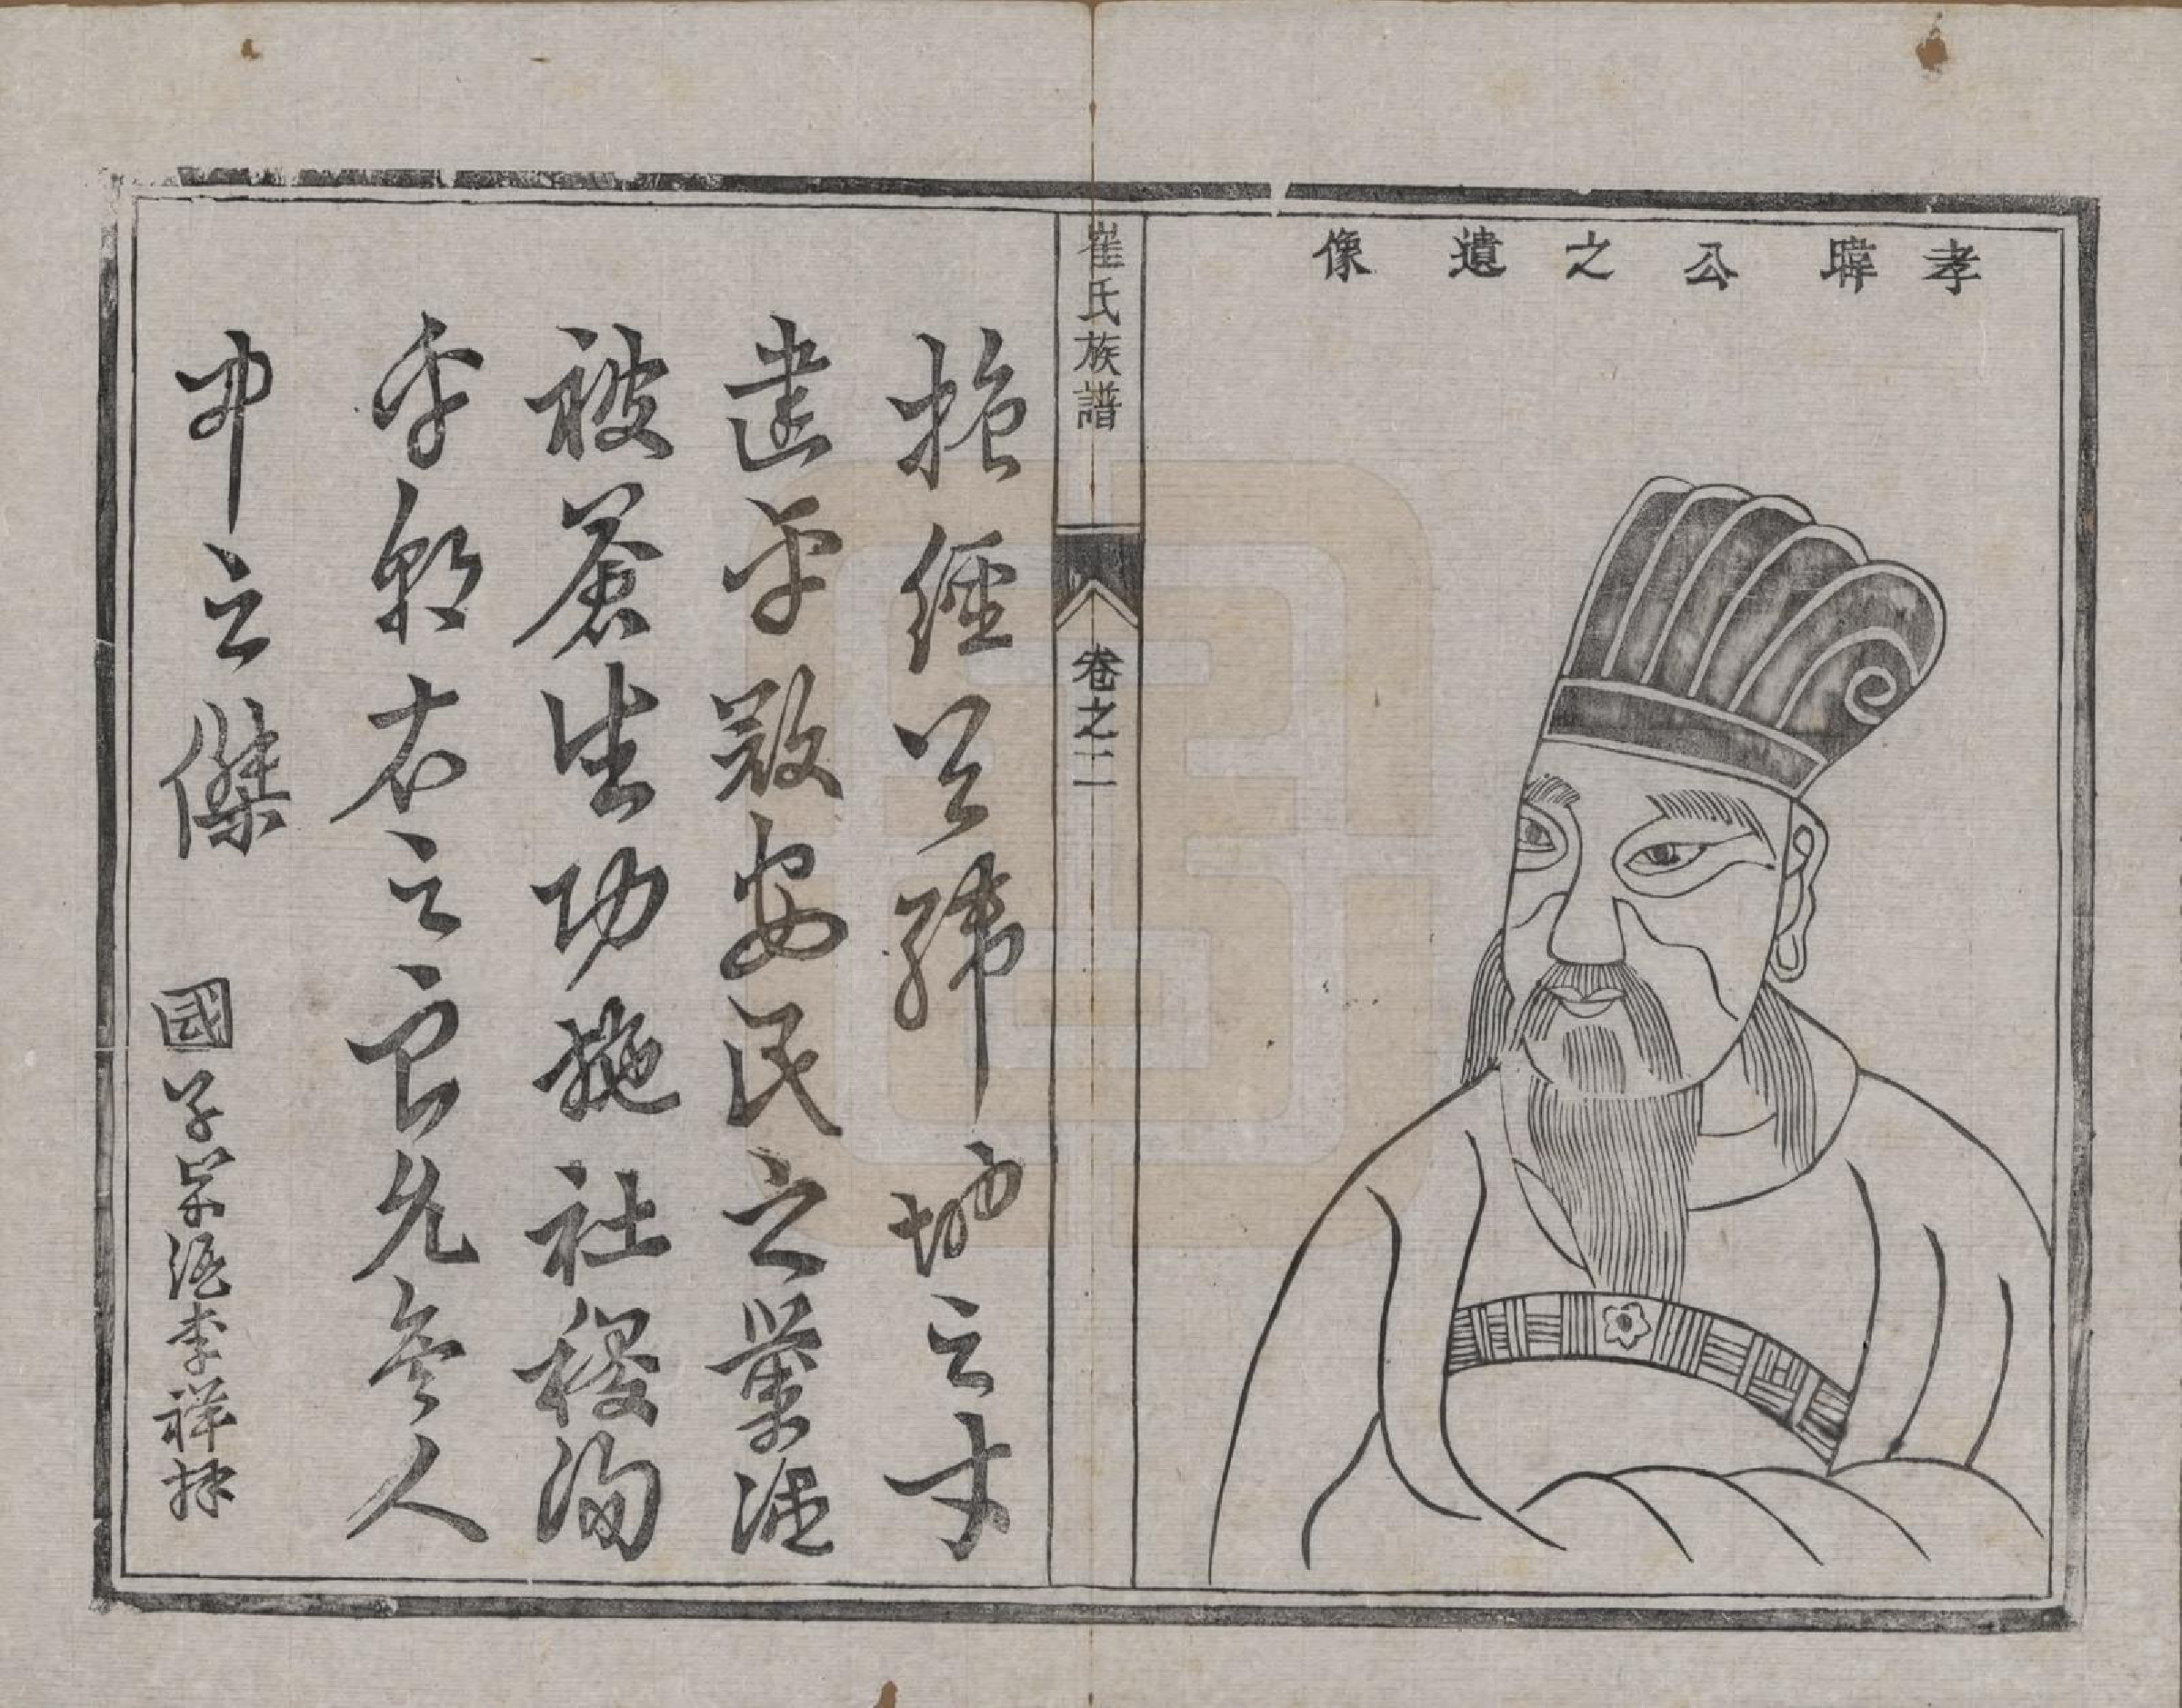 孝暐公之遺像
崔氏族譜
卷之二
抱經天緯地之才
建平敵安民之業德
被蒼生功施社稷洵
乎朝右之良允矣人
中之傑
國子學 李祥拜